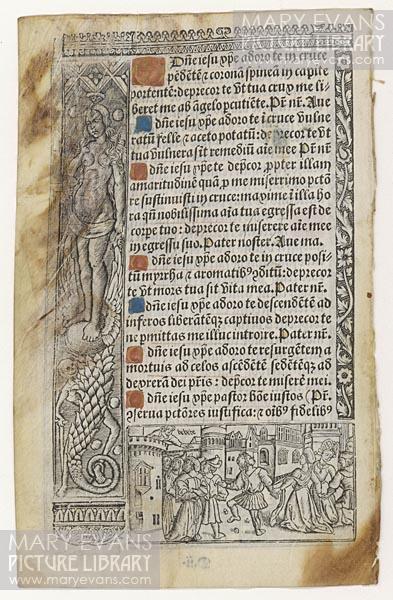 MARY EVANS
PICTURE LIBRARY
www.maryevans.com
Dñe iesu xpe adoro te in cruce
pẽdẽtẽ & coronã spineã in capite
portentẽ: deprecor te vt tua crux me li-
beret me ab ãgelo pcutiẽte. Pr̃ nr̃. Aue
dñe iesu xpe adoro te ĩ cruce vulne
ratũ felle & aceto potatũ: deprecor te vt
tua vulnera sit remediũ aĩe mee Pr̃ nr̃.
dñe iesu xpe te dep̃cor ꝓpter illam
amaritudinẽ quã ꝓ me miserrimo pctõ
re sustinuisti in cruce: maxime ĩ illa ho
ra qñ nobilissima aĩa tua egressa est de
corpe tuo: deprecor te miserere aĩe mee
in egressu suo. Pater noster. Aue ma.
dñe iesu xpe adoro te in cruce posi-
tũ myrrha & aromatib⁹ ɔditũ: deprecor
te vt mors tua sit vita mea. Pater nr̃.
dñe iesu xpe adoro te descendẽtẽ ad
inferos liberãtẽqꝫ captiuos deprecor te
ne pmittas me illuc introire. Pater nr̃.
dñe iesu xpe adoro te resurgẽtem a
mortuis ad celos ascẽdẽtẽ sedẽtẽqꝫ ad
dexterã dei pr̃is: dep̃cor te miserẽ mei.
dñe iesu xpe pastor bõe iustos
ɔserua pctõres iustifica: & oĩb⁹ fidelib⁹
MARY EVANS
PICTURE LIBRARY
www.maryevans.com
MARY EVANS
PICTURE LIBRARY
www.maryevans.com